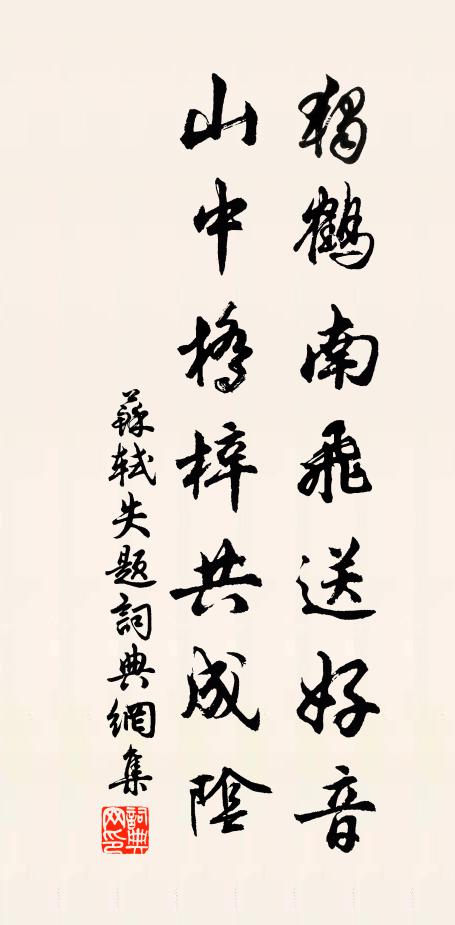 獨鶴南飛送好音
山中橋梓共成陰
蘇軾失題詞典網集
詞典网印